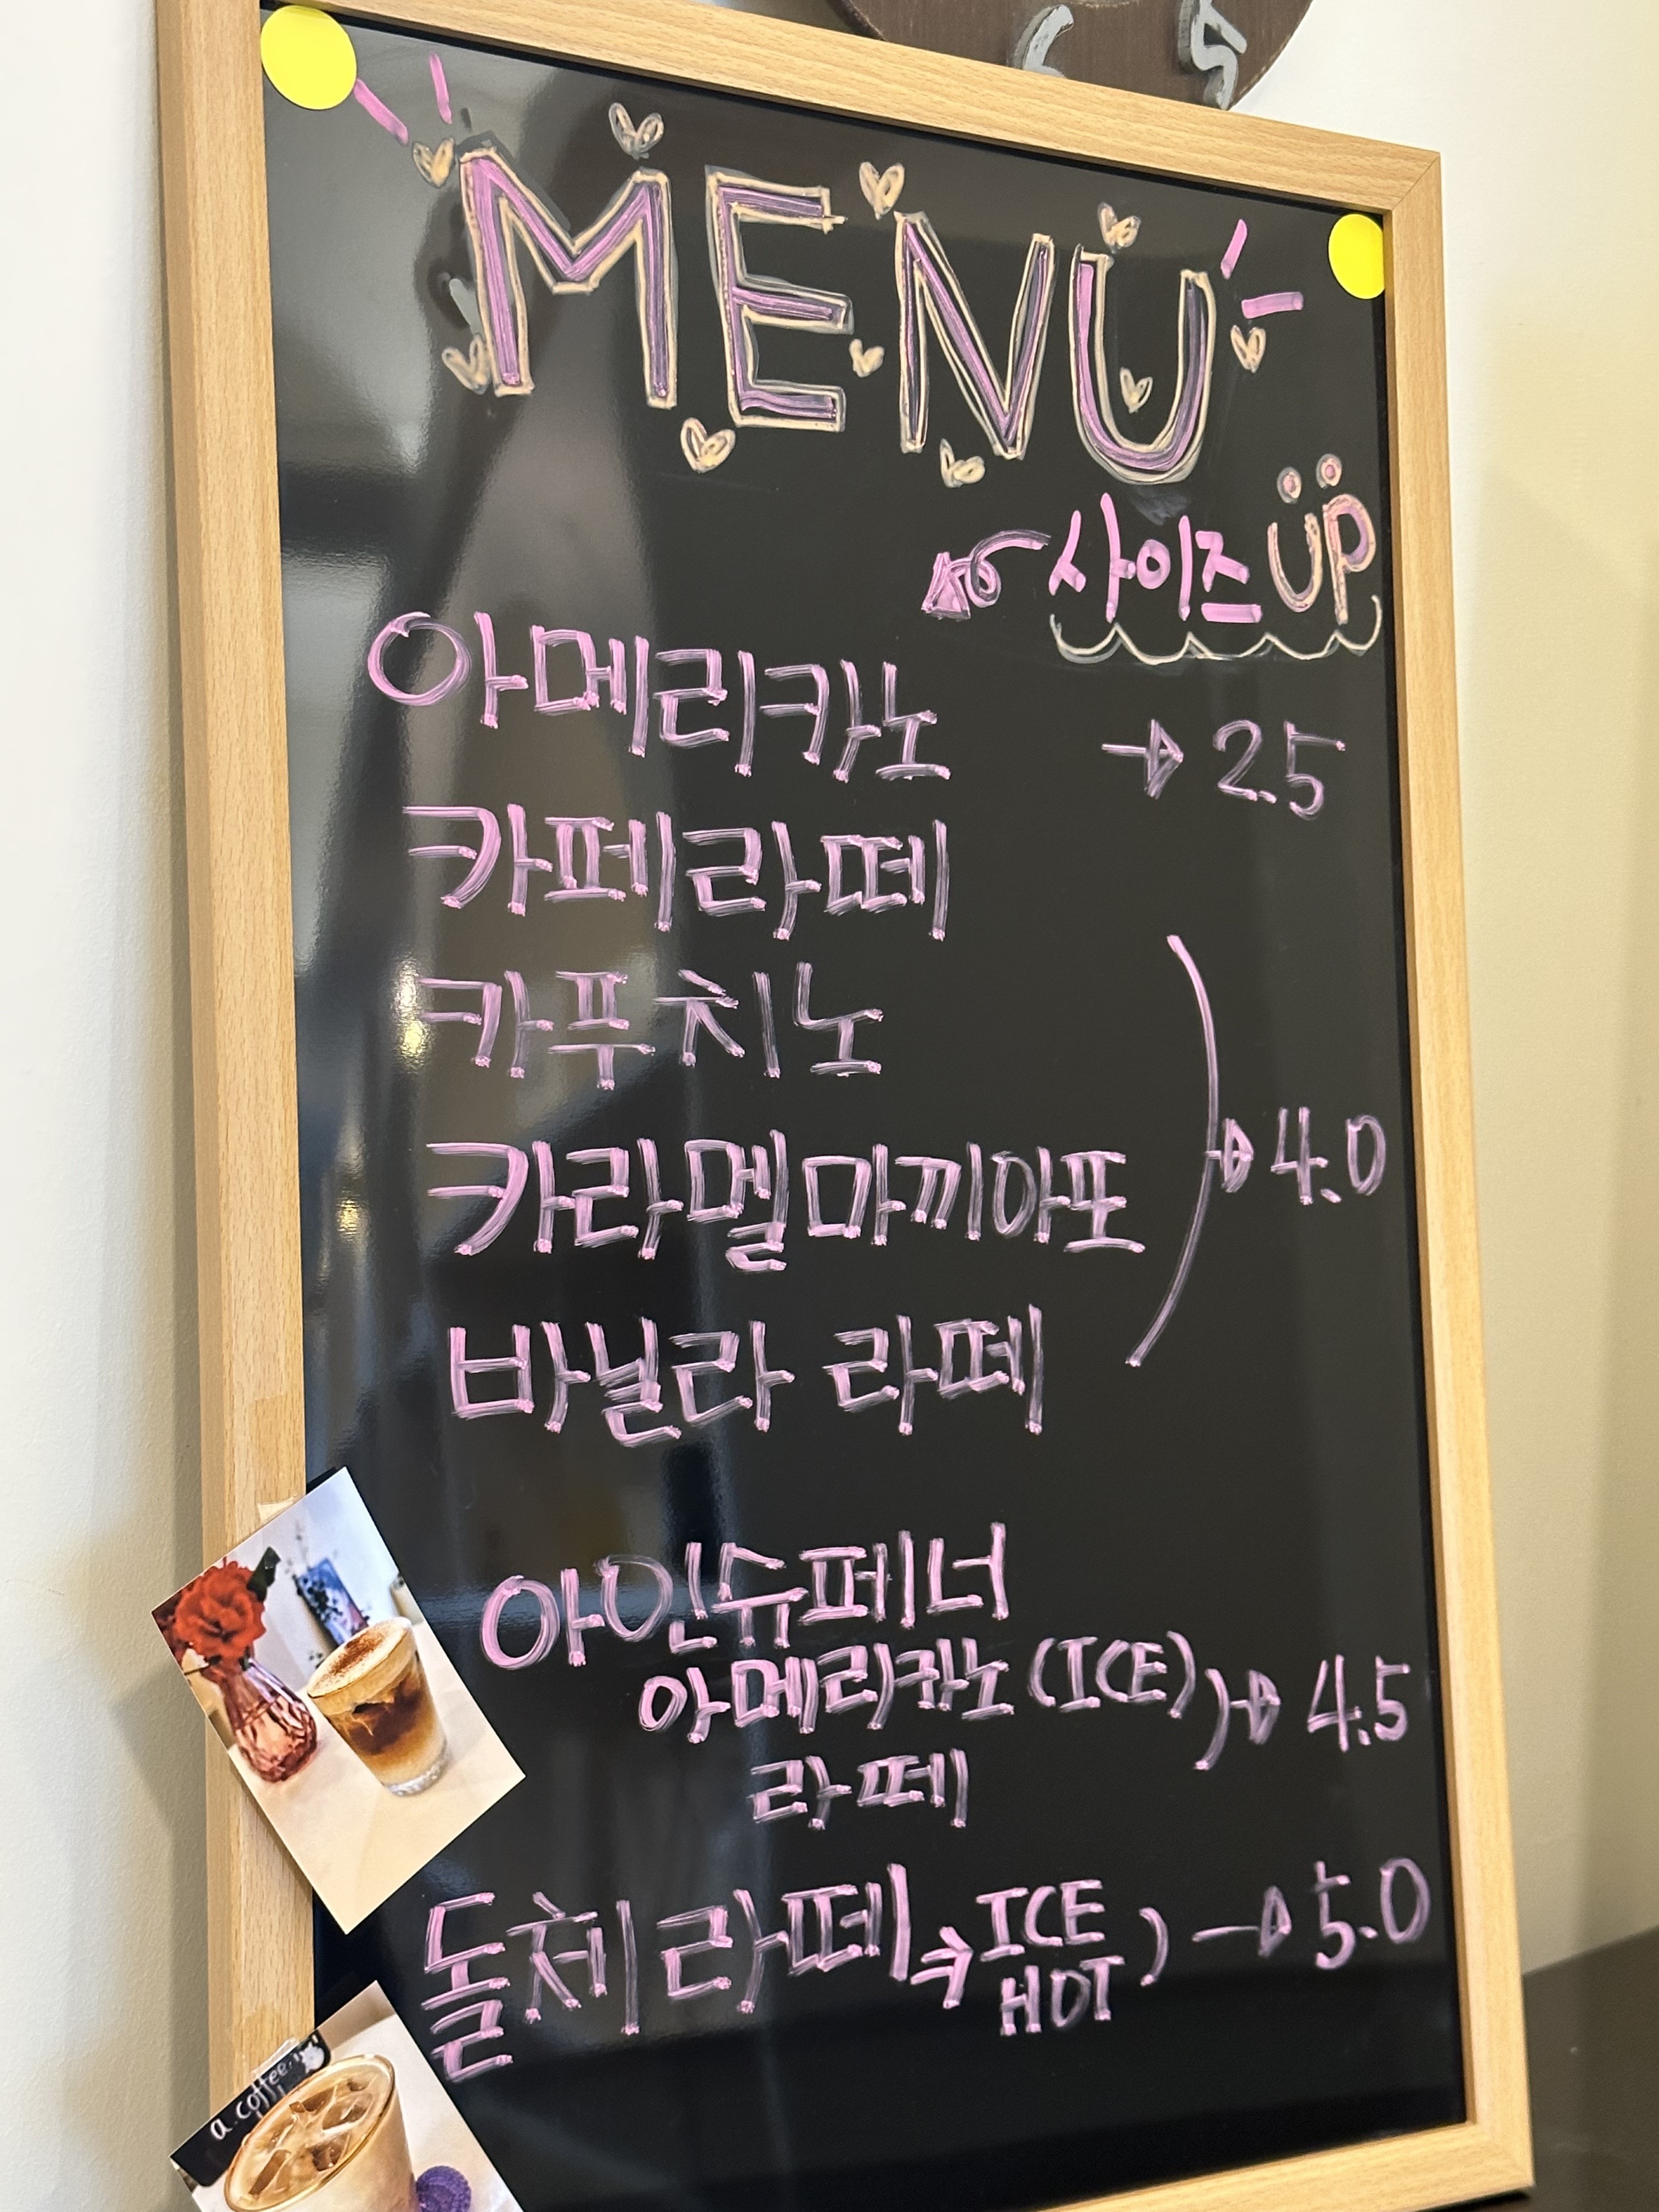 MENU
사이즈 UP
아메리카노 → 2.5
카페라떼
카푸치노
카라멜마끼아또
바닐라 라떼
→ 4.0
아인슈페너
아메리카노 (ICE)
라떼
→ 4.5
돌체 라떼 → ICE HOT ) → 5.0
a. coffee.